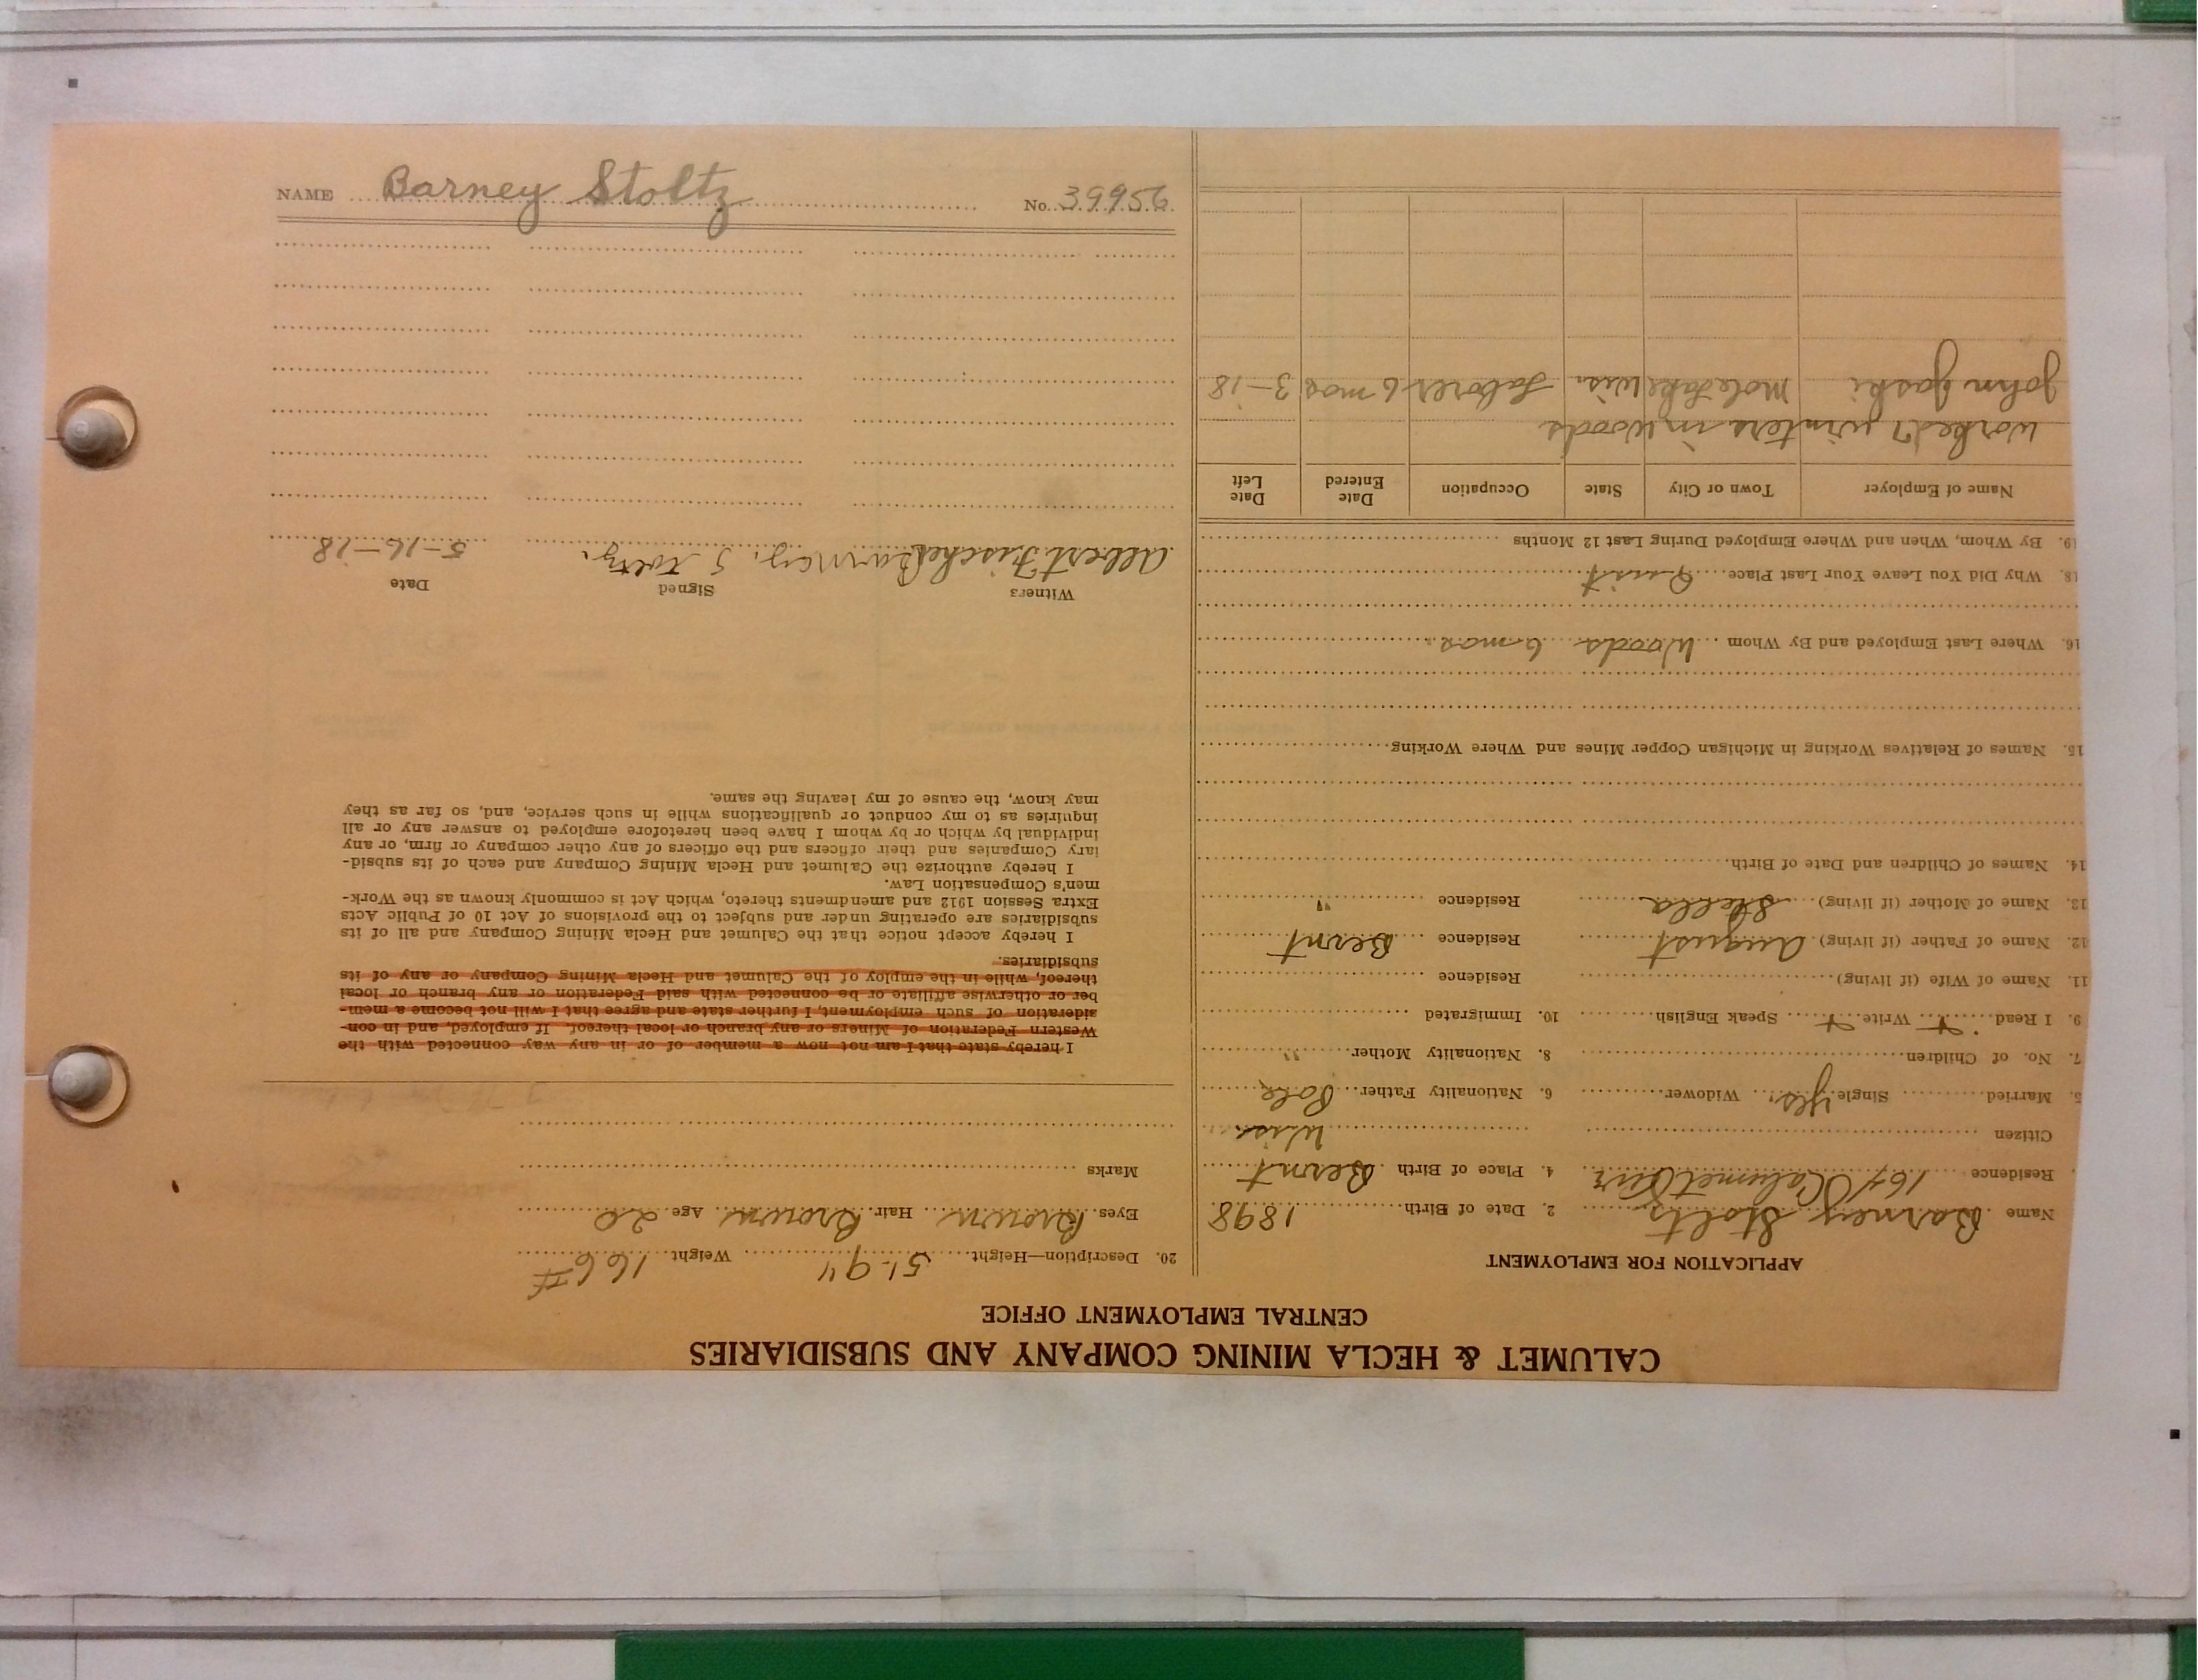 CALUMET & HECLA MINING COMPANY AND SUBSIDIARIES
CENTRAL EMPLOYMENT OFFICE
APPLICATION FOR EMPLOYMENT
Name Barney Stolts 2. Date of Birth 1898
Residence 1640 Calumet 4. Place of Birth Bernt
Citizen Wis.
5. Married Single Yes. Widower 6. Nationality Father Pole
7. No. of Children 8. Nationality Mother "
9. I Read Write Speak English 10. Immigrated
11. Name of Wife (if living) Residence
12. Name of Father (if living) August Residence Bernt
13. Name of Mother (if living) Stella Residence "
14. Names of Children and Date of Birth.
15. Names of Relatives Working in Michigan Copper Mines and Where Working
16. Where Last Employed and By Whom Woods 6 mos.
18. Why Did You Leave Your Last Place Quit
19. By Whom, When and Where Employed During Last 12 Months
Name of Employer Town or City State Occupation Date Entered Date Left
Worked 7 winters in woods
John Jaski Mole Lake Wis. Laborer 6 mos 3-18
20. Description—Height 5'-9 1/4 Weight 166 #
Eyes Brown Hair Brown Age 20
Marks
I hereby state that I am not now a member of or in any way connected with the
Western Federation of Miners or any branch or local thereof. If employed, and in con-
sideration of such employment, I further state and agree that I will not become a mem-
ber or otherwise affiliate or be connected with said Federation or any branch or local
thereof, while in the employ of the Calumet and Hecla Mining Company or any of its
subsidiaries.
I hereby accept notice that the Calumet and Hecla Mining Company and all of its
subsidiaries are operating under and subject to the provisions of Act 10 of Public Acts
Extra Session 1912 and amendments thereto, which Act is commonly known as the Work-
men's Compensation Law.
I hereby authorize the Calumet and Hecla Mining Company and each of its subsid-
iary Companies and their officers and the officers of any other company or firm, or any
individual by which or by whom I have been heretofore employed to answer any or all
inquiries as to my conduct or qualifications while in such service, and, so far as they
may know, the cause of my leaving the same.
Witness Signed Date
Albert Fischer Barney. Stoltz. 5-16-18
NAME Barney Stoltz No. 39956